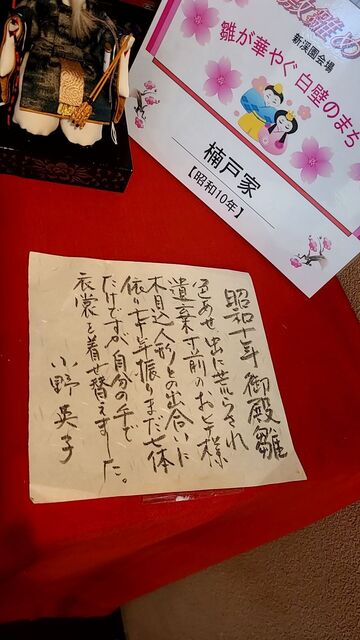 敷雛め
新渓園会場
雛が華やぐ 白壁のまち
楠戸家
【昭和10年】
昭和十年 御殿雛
色あせ 虫に荒らされ
遺棄寸前のおヒナ様
木目込人形との出合いに
依り七十年振りまだ七体
だけですが、自分の手で
衣裳を着せ替えました。
小野英子